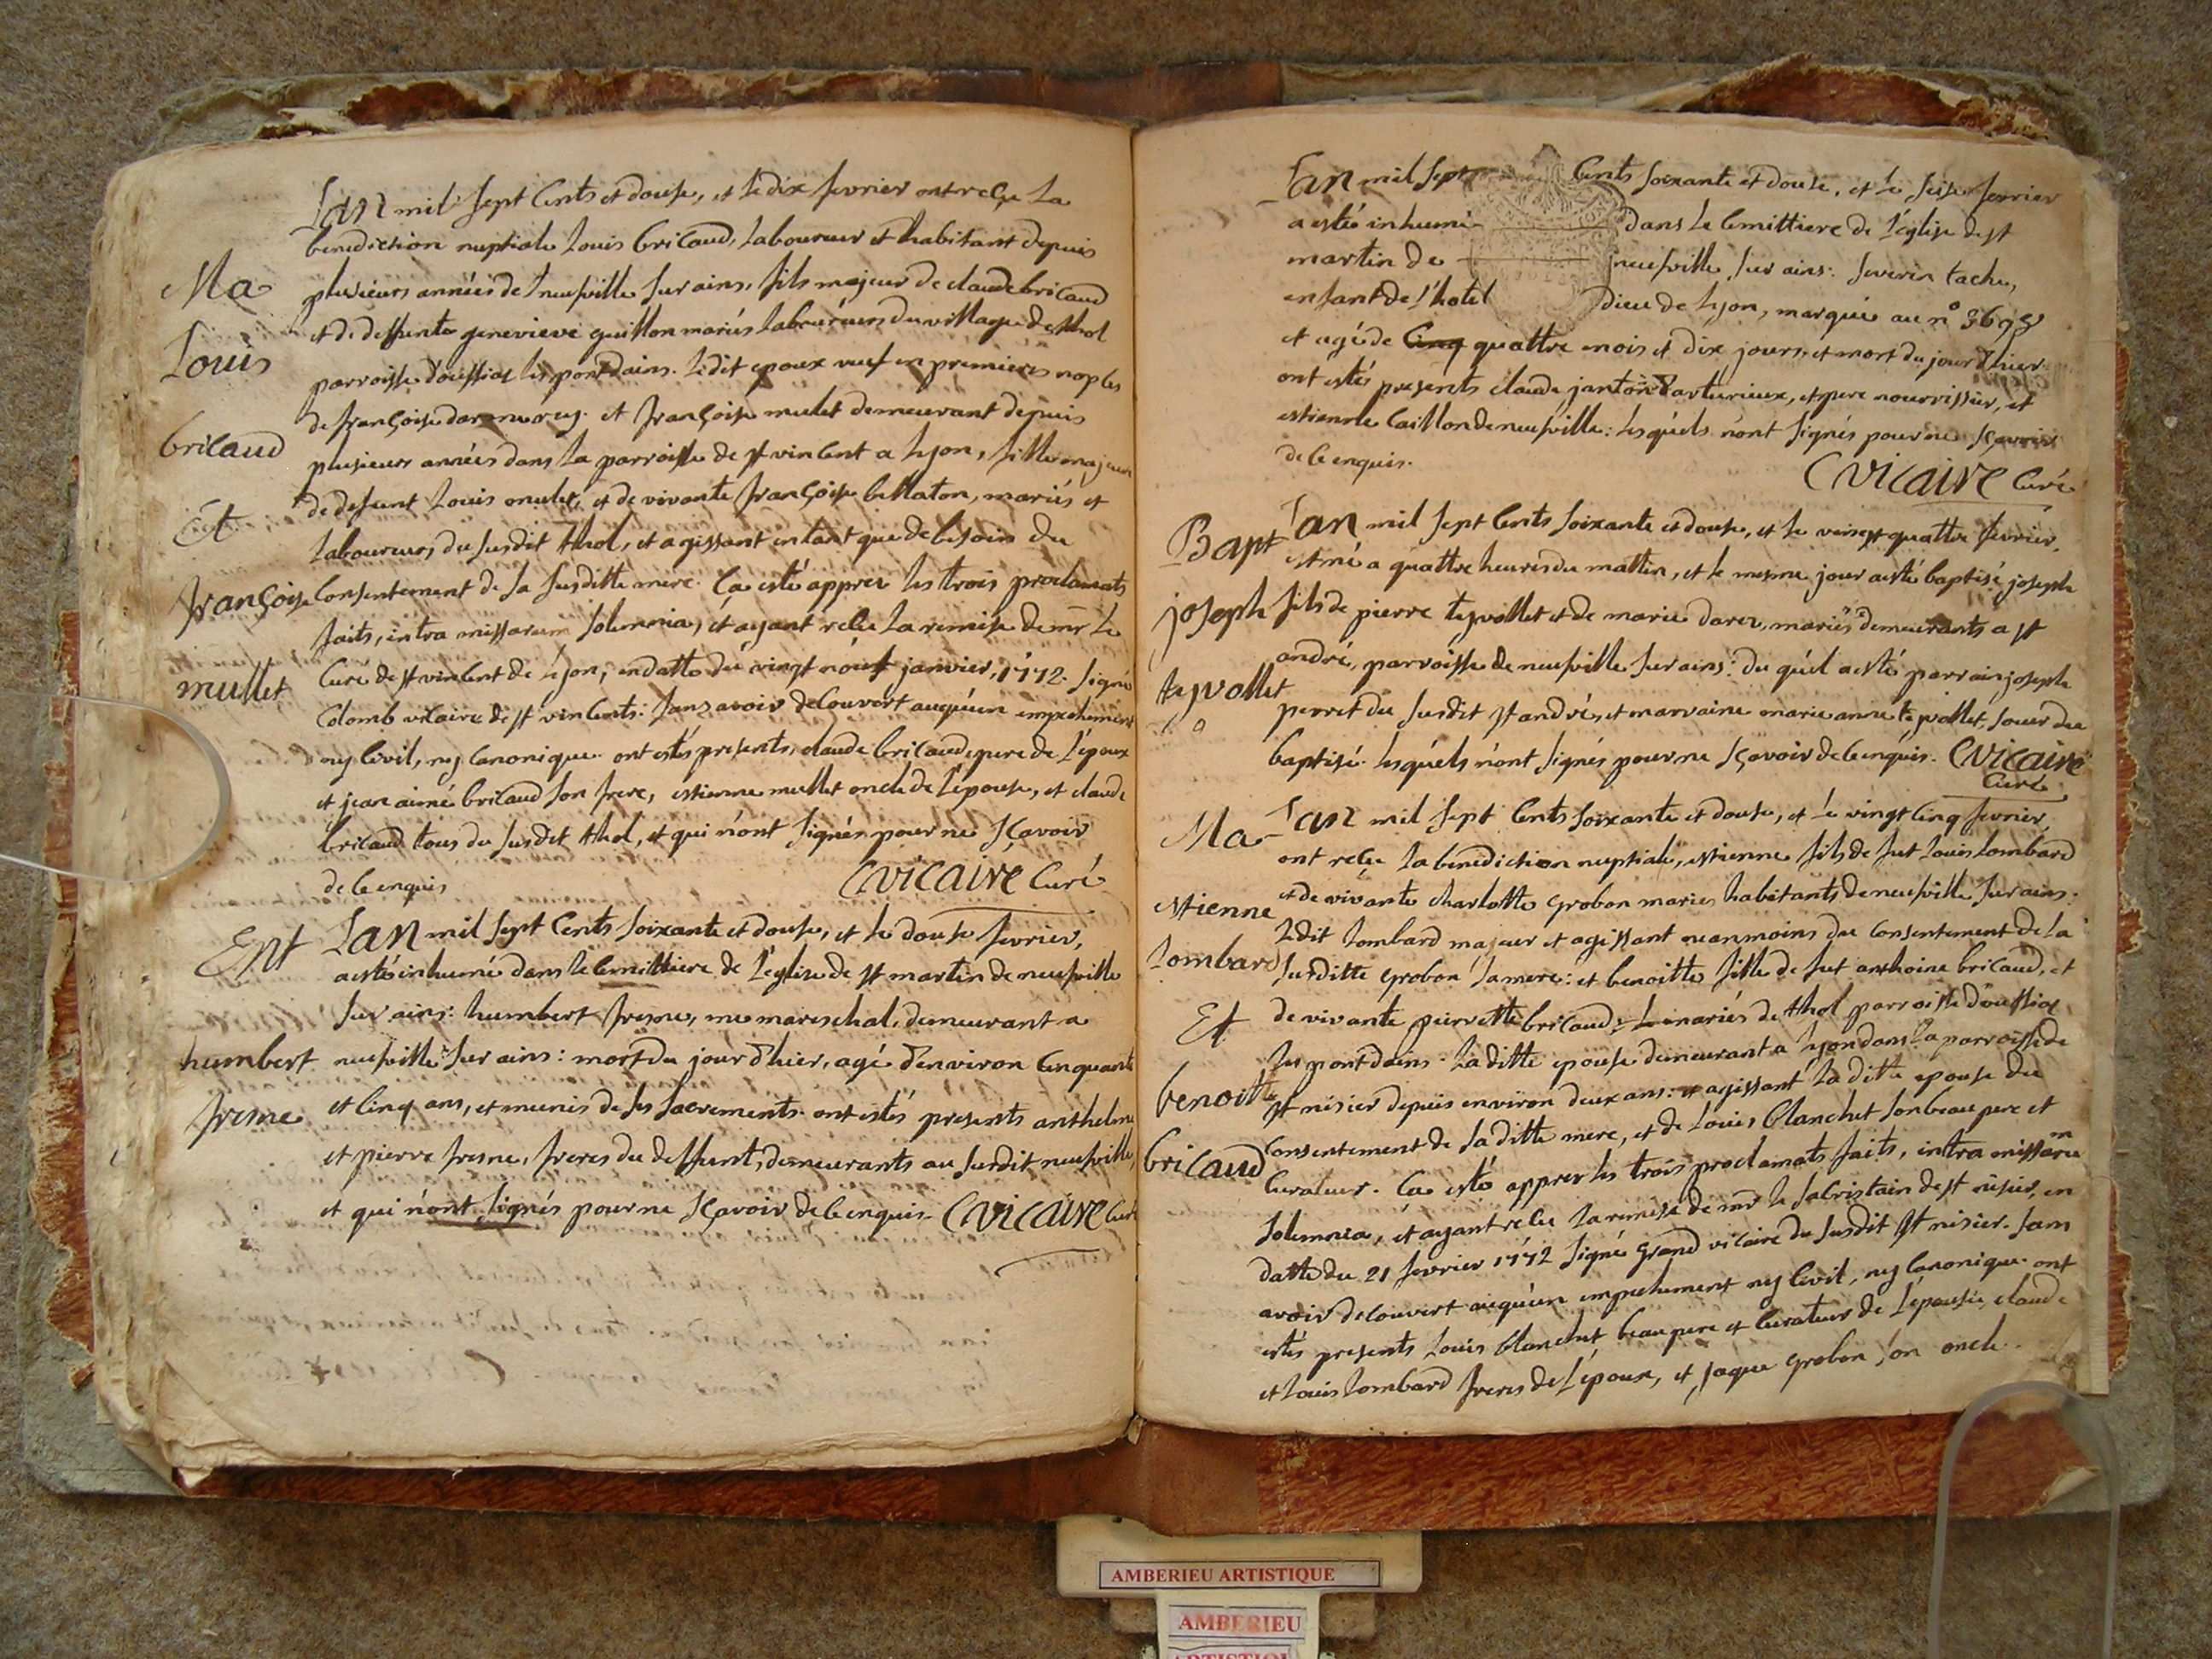 Lan mil sept Cents et douse, et le dix fevrier ont reçu La
benediction nuptiale Louis bricaud, Laboureur et habitant depuis
Ma
plusieurs années de neufville sur ains, fils majeur de claude bricaud
et de deffunte genevieve guillon mariés Laboureurs du village de thol
Louis
parroisse d'oussiat les pont dains. Ledit epoux veuf en premieres nopces
de françoise et françoise mulet demeurant depuis
bricaud
plusieurs années dans La parroisse de st vincent a Lyon, fille majeure
de defunt Louis mulet, et de vivante françoise bellaton, mariés et
Et
Laboureurs, du susdit thol, et agissant entant que de besoin du
françoise
Consentement de sa susditte mere. Ça esté apprez les trois proclamats
faits, intra missarum solemnia, et ayant reçu La remise de mr Le
mullet
Curé de st vincent de Lyon, en datte du vingt neuf janvier, 1772. signé
Colomb vicaire de st vincents. sans avoir decouvert auquéun empechement
ny Civil, ny Canonique. ont estés presents, claude bricaud pere de L'époux
et jean aimé bricaud son frere, estienne mullet oncle de L'épouse, et claude
bricaud tous du susdit thol, et qui n'ont signés pour ne sçavoir
de Ce enquis
Cvicaire Curé
Ent
Lan mil sept Cents soixante et douse, et le douse fevrier,
a esté inhumé dans le Cemittiere de L'église de st martin de neufville
sur ains: humbert fresne, me mareschal, demeurant a
humbert
neufville sur ains: mort du jour d'hier, agé d'environ Cinquante
fresne
et Cinq ans, et munis de ses sacrements. ont estés presents anthelme
et pierre fresne, freres du deffunt, demeurants au susdit neufville,
et qui n'ont signés pour ne sçavoir de Ce enquis. Cvicaire Curé
Lan mil sept Cents soixante et douse, et le seise fevrier
a esté inhumé dans Le Cemittiere de L'église de st
martin de neufville sur ains: severin tachu,
enfant de L'hotel dieu de Lyon, marqué au n° 3698
et agé de Cinq quattre mois et dix jours, et mort du jour d'hier.
ont estés presents claude janton d'arturieux, et pere nourrissier, et
estienne Caillon de neufville: lesquéls n'ont signés pour ne sçavoir
de Ce enquis.
Cvicaire Curé
Bapt
Lan mil sept Cents soixante et douse, et le vingt quattre fevrier,
est né a quattre heures du mattin, et le mesme jour a esté baptisé, joseph
joseph
fils de pierre teyvollet et de marie darez, mariés demeurants a st
andré, parroisse de neufville sur ains: du quél a esté parrain joseph
teyvollet
perret du susdit st andré, et marraine marie anne teyvollet, soeur du
baptisé. lesquéls n'ont signés pour ne sçavoir de Ce enquis. Cvicaire
Curé
Ma
Lan mil sept Cents soixante et douse, et le vingt Cinq fevrier,
ont reçu La benediction nuptiale, estienne fils de fut Louis Lombard
estienne
et de vivante charlotte grobon mariés habitants de neufville sur ains:
Ledit Lombard majeur et agissant neanmoins du Consentement de La
Lombard
susditte grobon sa mere: et benoitte fille de fut anthoine bricaud, et
Et
de vivante pierrette bricaud, mariés de thol parroisse d'oussiat
les pont dains. La ditte epouse demeurant a Lyon dans La parroisse de
benoitte
st nisier depuis environ deux ans: et agissant La ditte epouse du
bricaud
Consentement de sa ditte mere, et de Louis blanchet son beau pere et
Curateur. Ça esté apprez les trois proclamats faits, intra missarum
solemnia, et ayant reçu La remise de mr le sacristain de st nisier, en
datte du 21 fevrier 1772 signé grand vicaire du susdit st nisier. sans
avoir decouvert auquéun empechement ny Civil, ny Canonique. ont
estés presents Louis blanchet, beau pere et Curateur de L'épouse, claude
et Louis Lombard freres de L'époux, et jaque grobon son oncle.
AMBERIEU ARTISTIQUE
AMBERIEU
ARTISTIQUE